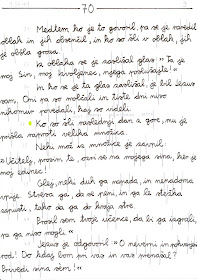 70
Medtem ko je to govoril, pa se je naredil
oblak in jih obsenčil, in ko so šli v oblak, jih
je obšla groza.
Iz oblaka se je zaslišal glas: "Ta je
moj Sin, moj Izvoljenec, njega poslušajte!"
In ko se je ta glas zaslišal, je bil Jezus
sam. Oni pa so molčali in tiste dni niso
nikomur povedali, kaj so videli.
Ko so šli naslednji dan z gore, mu je
prišla naproti velika množica.
Neki mož iz množice je zavpil:
"Učitelj, prosim te, ozri se na mojega sina, ker je
moj edinec!
Glej, neki duh ga napada, in nenadoma
vpije. Stresa ga, da se peni, in ga le stežka
zapusti, tako da ga zdela do kraja.
Prosil sem tvoje učence, da bi ga izgnali,
pa ga niso mogli."
Jezus je odgovoril: "O neverni in pokvarjeni
rod! Do kdaj bom pri vas in vas prenašal?
Privedi sina sem!"